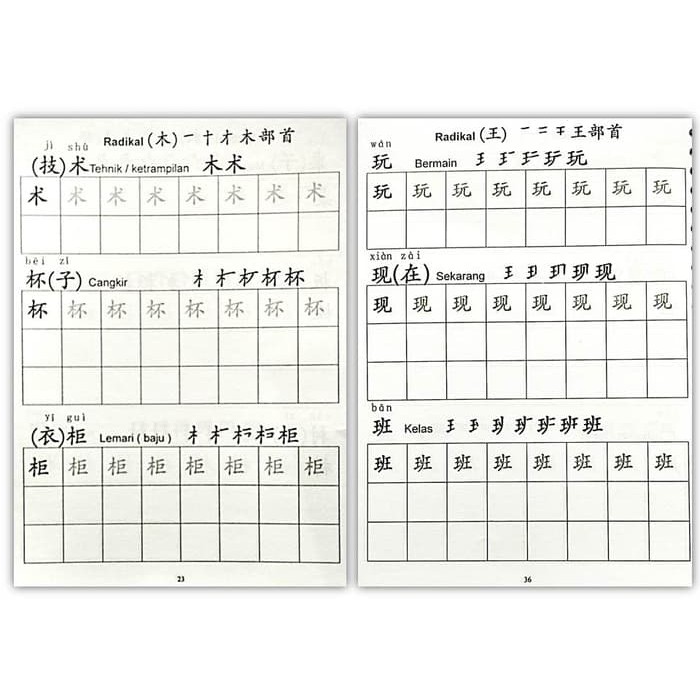 Radikal (木) 一十才木部首
jì shù
(技)术Tehnik / ketrampilan 木术
术 术 术 术 术 术 术 术
bēi zǐ
杯(子) Cangkir 杯
杯 杯 杯 杯 杯 杯 杯 杯
yī guì
(衣)柜 Lemari ( baju ) 柜
柜 柜 柜 柜 柜 柜 柜 柜
23
Radikal (王) 一 二 王部首
wán
玩 Bermain 玩
玩 玩 玩 玩 玩 玩 玩 玩
xiàn zài
现(在) Sekarang 现
现 现 现 现 现 现 现 现
bān
班 Kelas 班
班 班 班 班 班 班 班 班
36